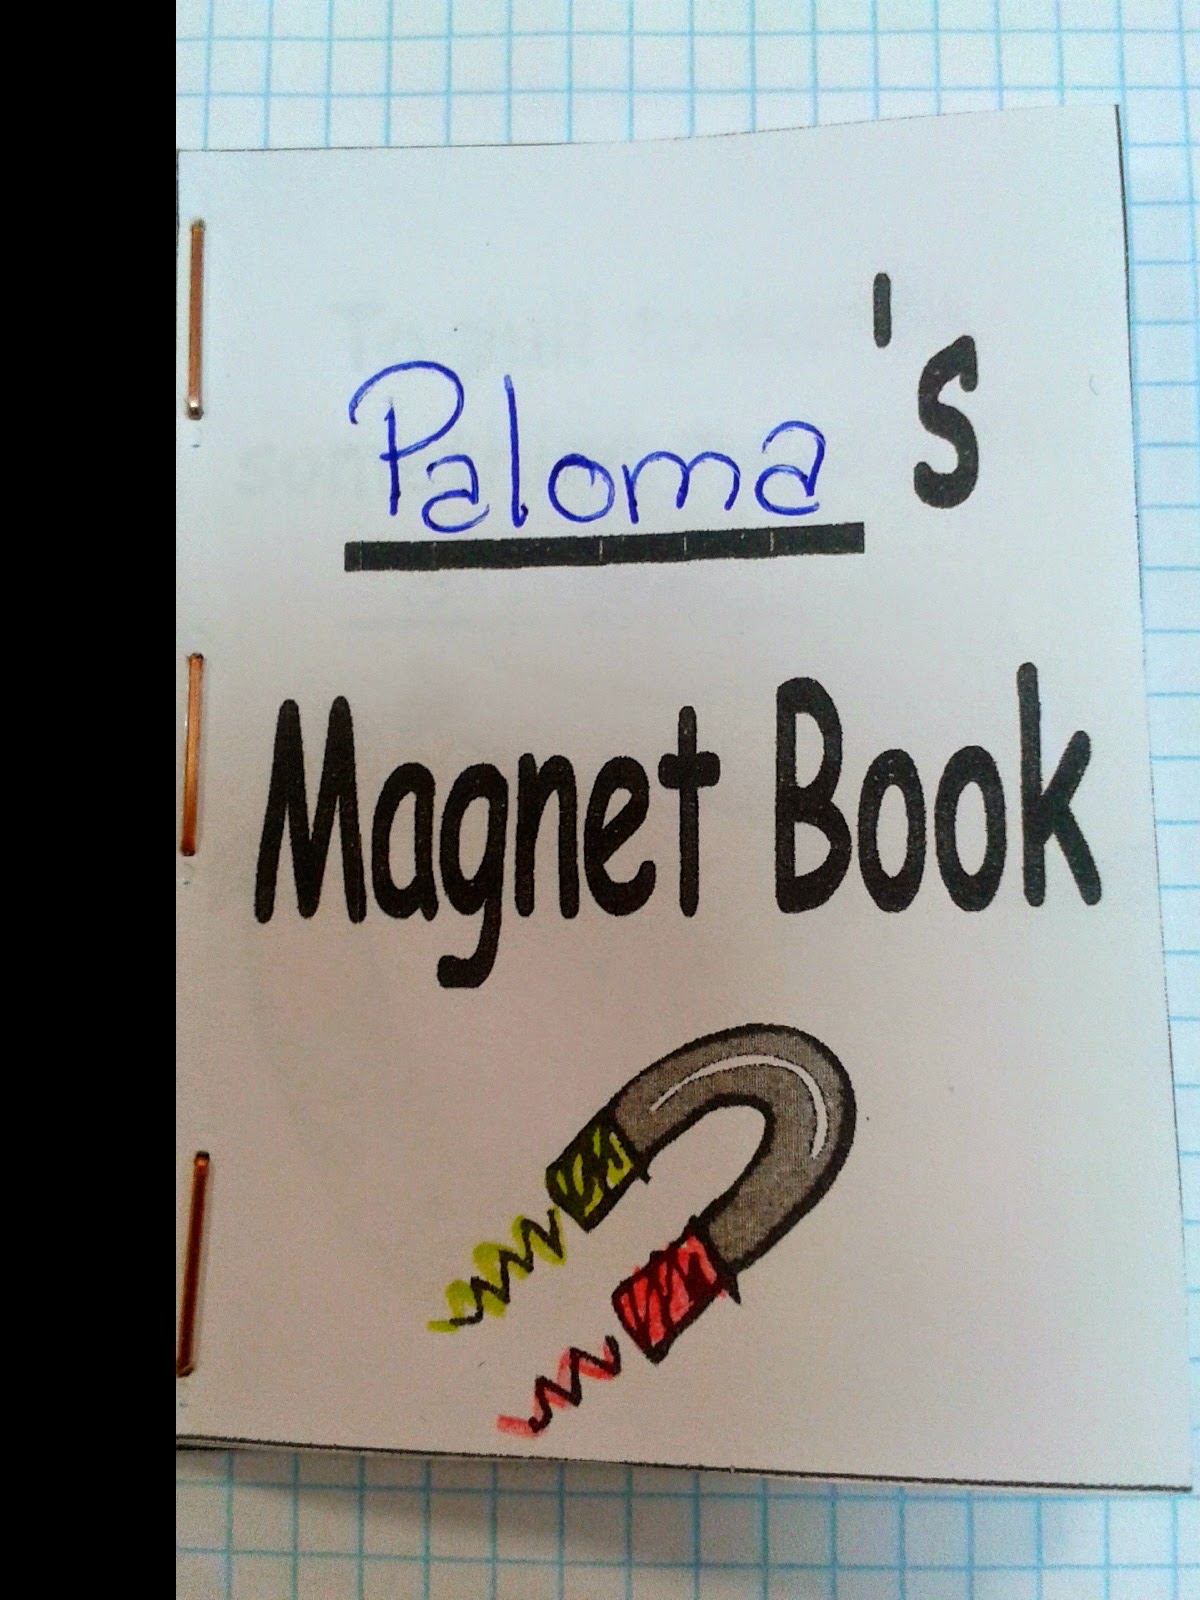 Paloma's
Magnet Book